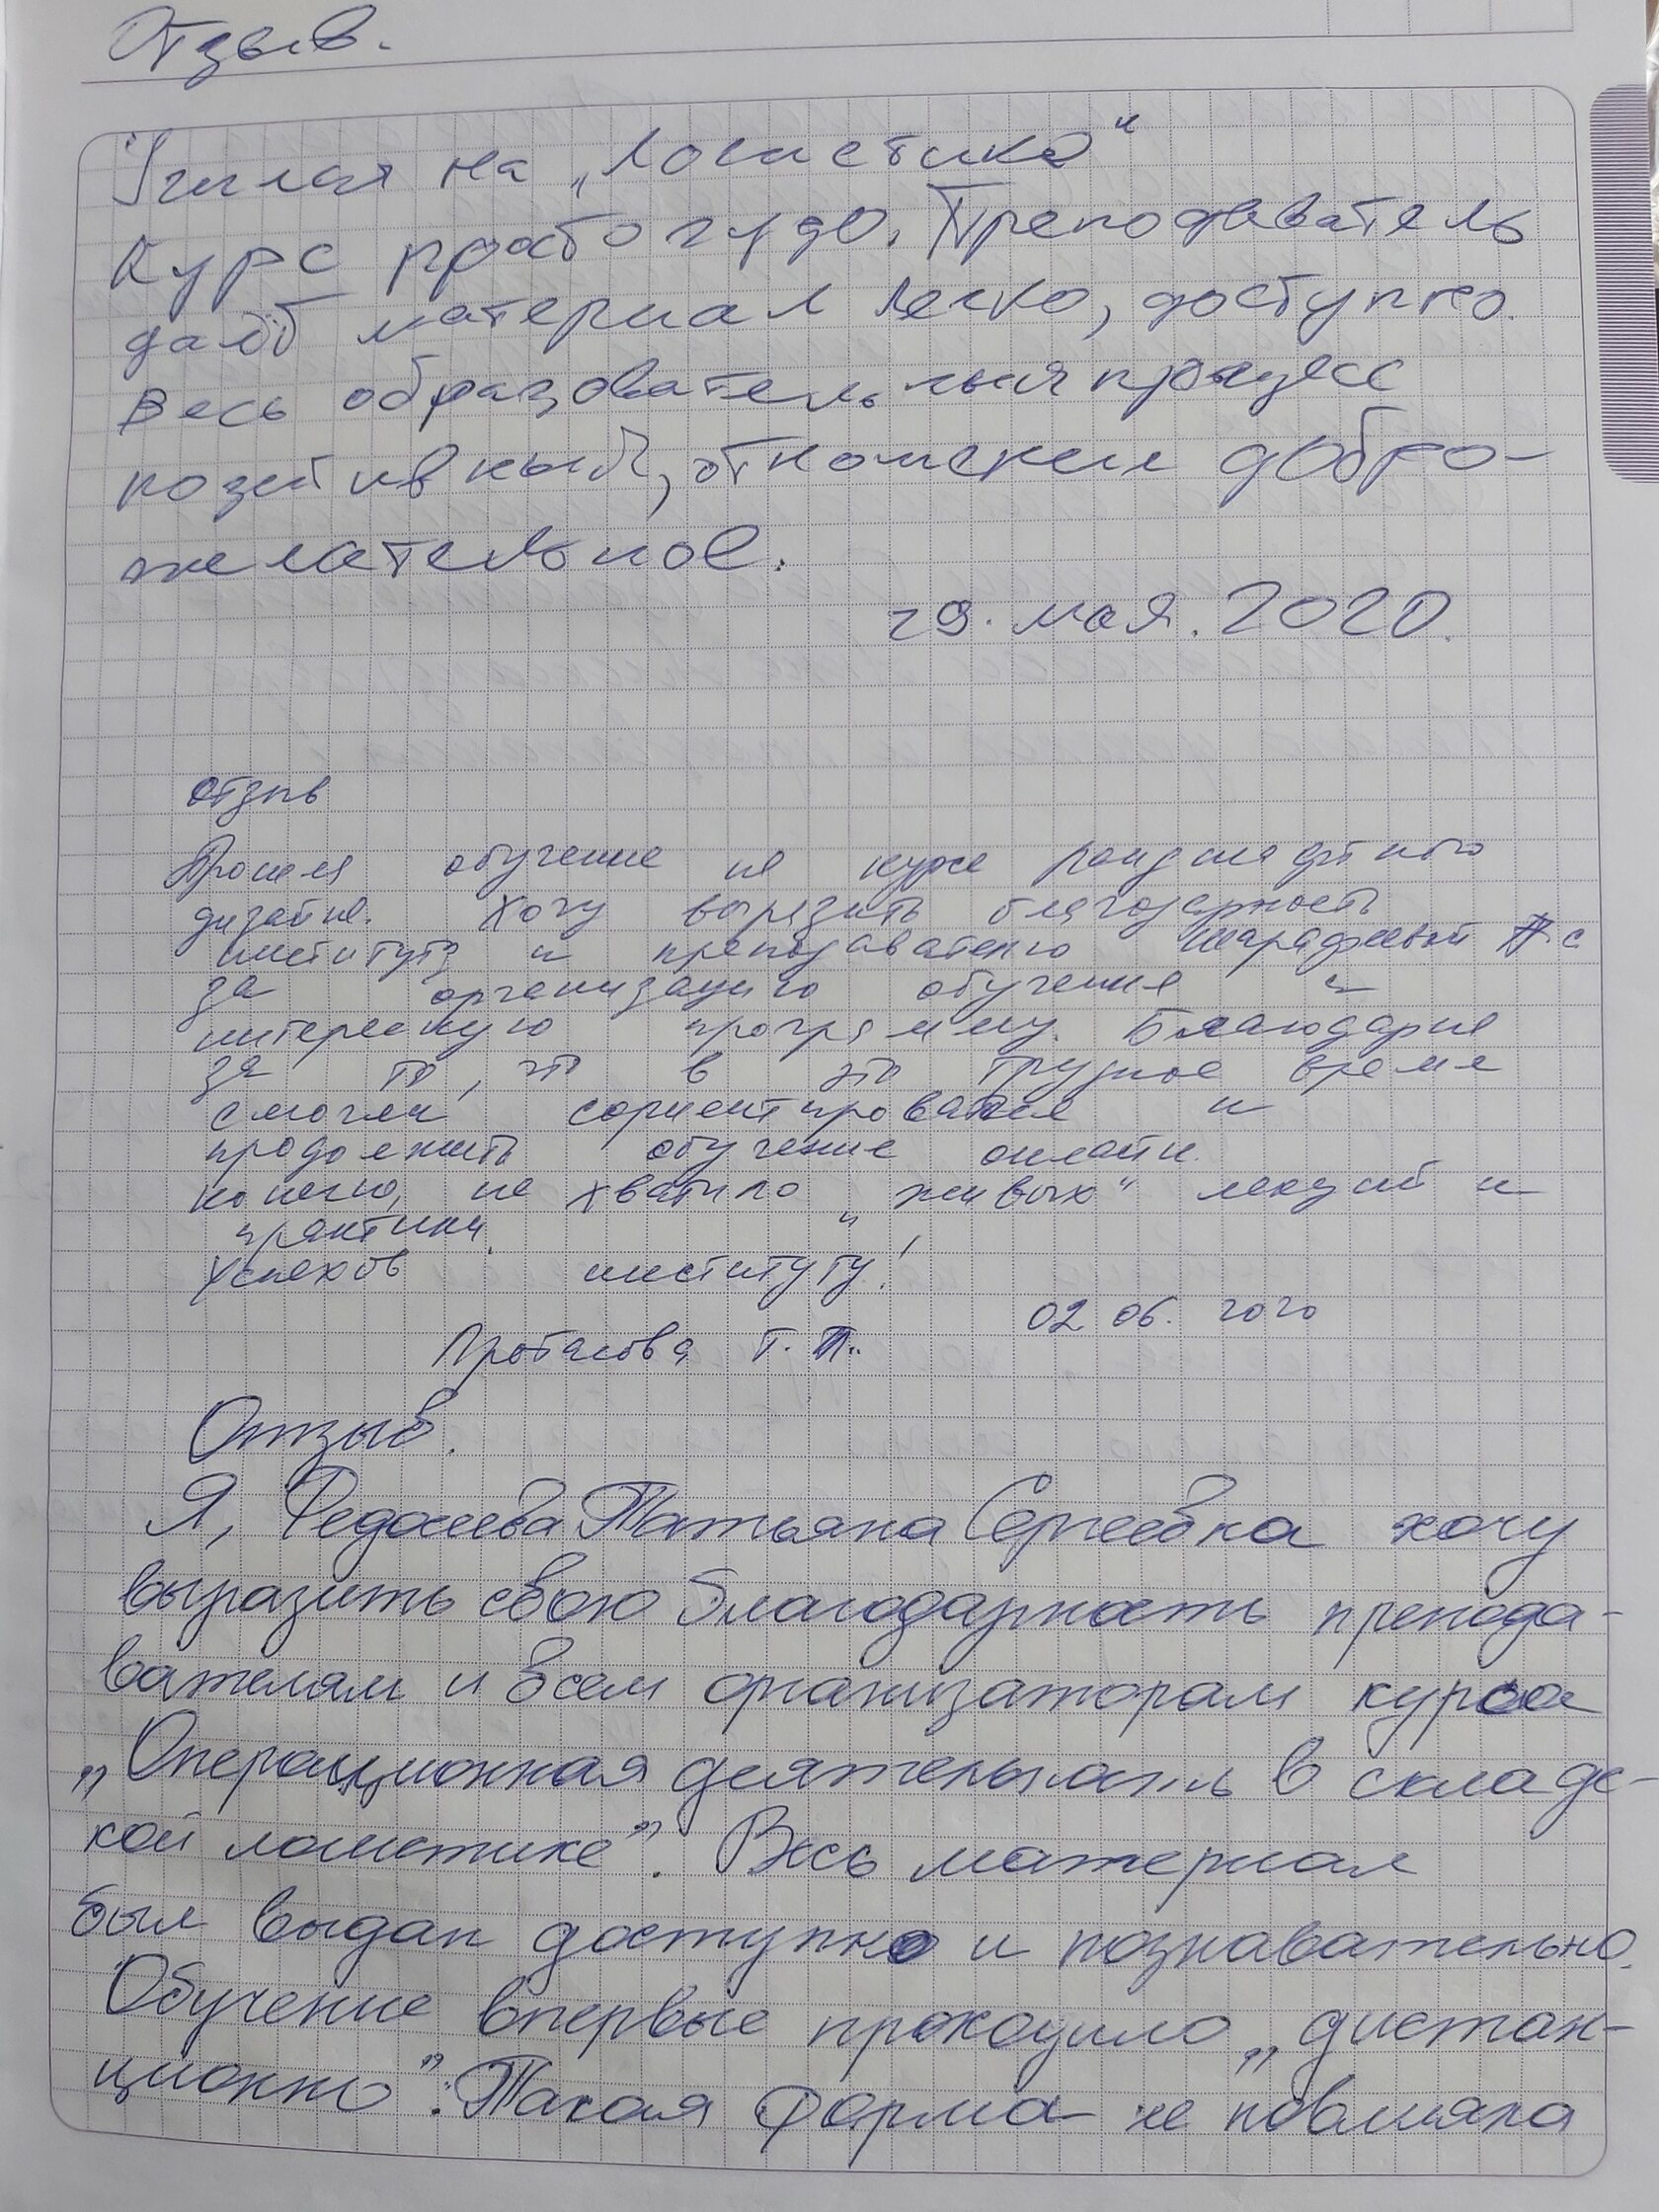 Отзыв.
Училая на „Логистика"
Курс просто чудо. Преподаватель
даёт материал легко, доступно.
Весь образовательныя процесс
позитивный, отношение добро-
желательное.
29. мая. 2020.
Отзыв
Прошла обучение на курсе ландшафтного
дизайна. Хочу выразить благодарность
институту и преподавателю Шарафеевой
за организацию обучения и
интересную программу. Благодарна
за то, что в это трудное время
смогли сориентироваться и
продолжить обучение онлайн.
Конечно, не хватило „живых" лекций и
практики.
Успехов институту!
02 06. 2020
Протасова Т. П.
Отзыв.
Я, Федосеева Татьяна Сергеевна хочу
выразить свою благодарность препода-
вателям и всем организаторам курса
„Операционная деятельность в складс-
кой логистике". Весь материал
был выдан доступно и познавательно.
Обучение впервые проходило „дистан-
ционно". Такая форма не повлияла